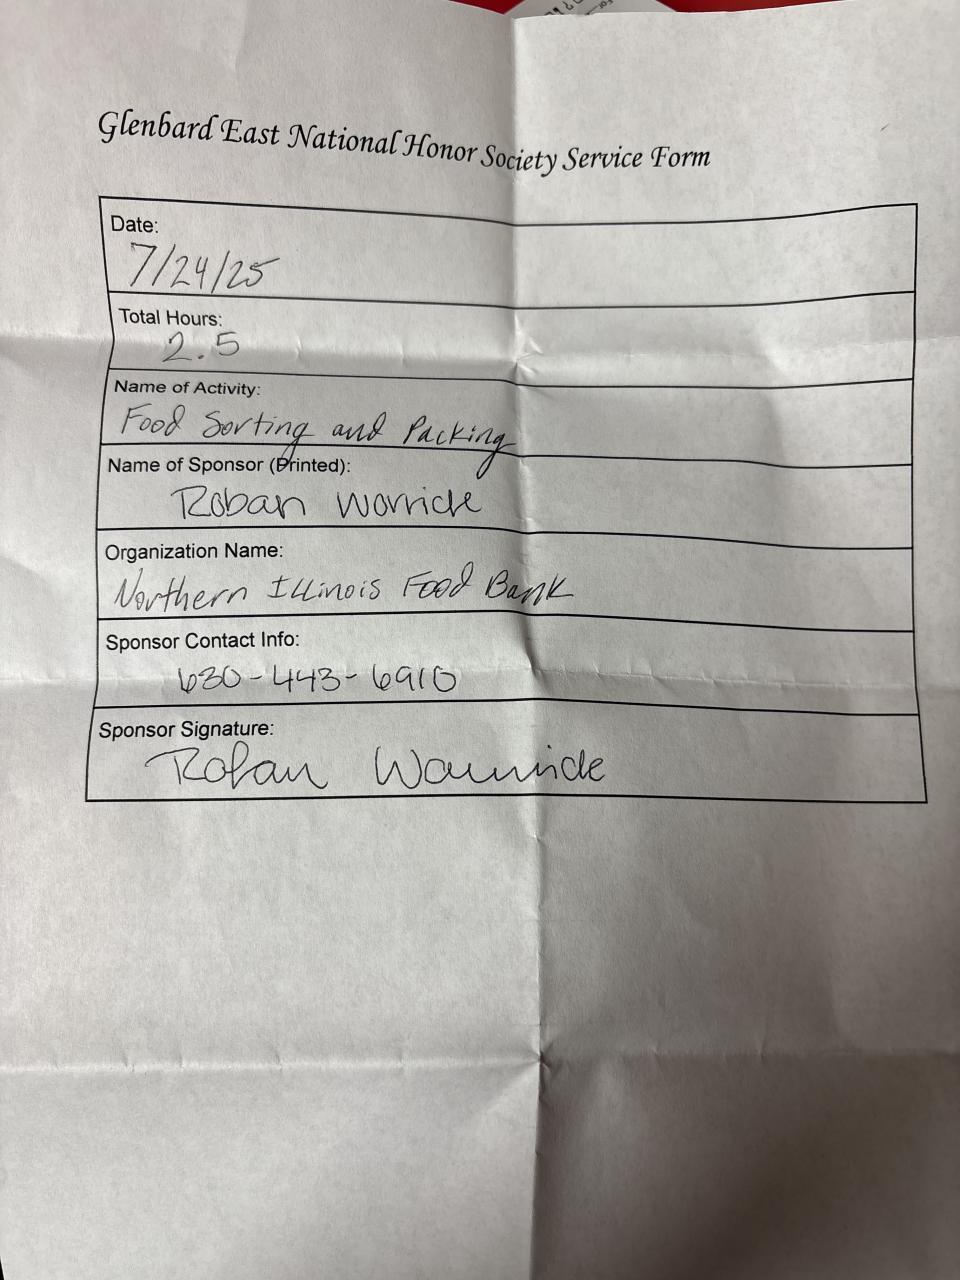 Glenbard East National Honor Society Service Form
Date:
7/24/25
Total Hours:
2.5
Name of Activity:
Food Sorting and Packing
Name of Sponsor (Printed):
Roban
Organization Name:
Northern Illinois Food Bank
Sponsor Contact Info:
630-443-6910
Sponsor Signature: